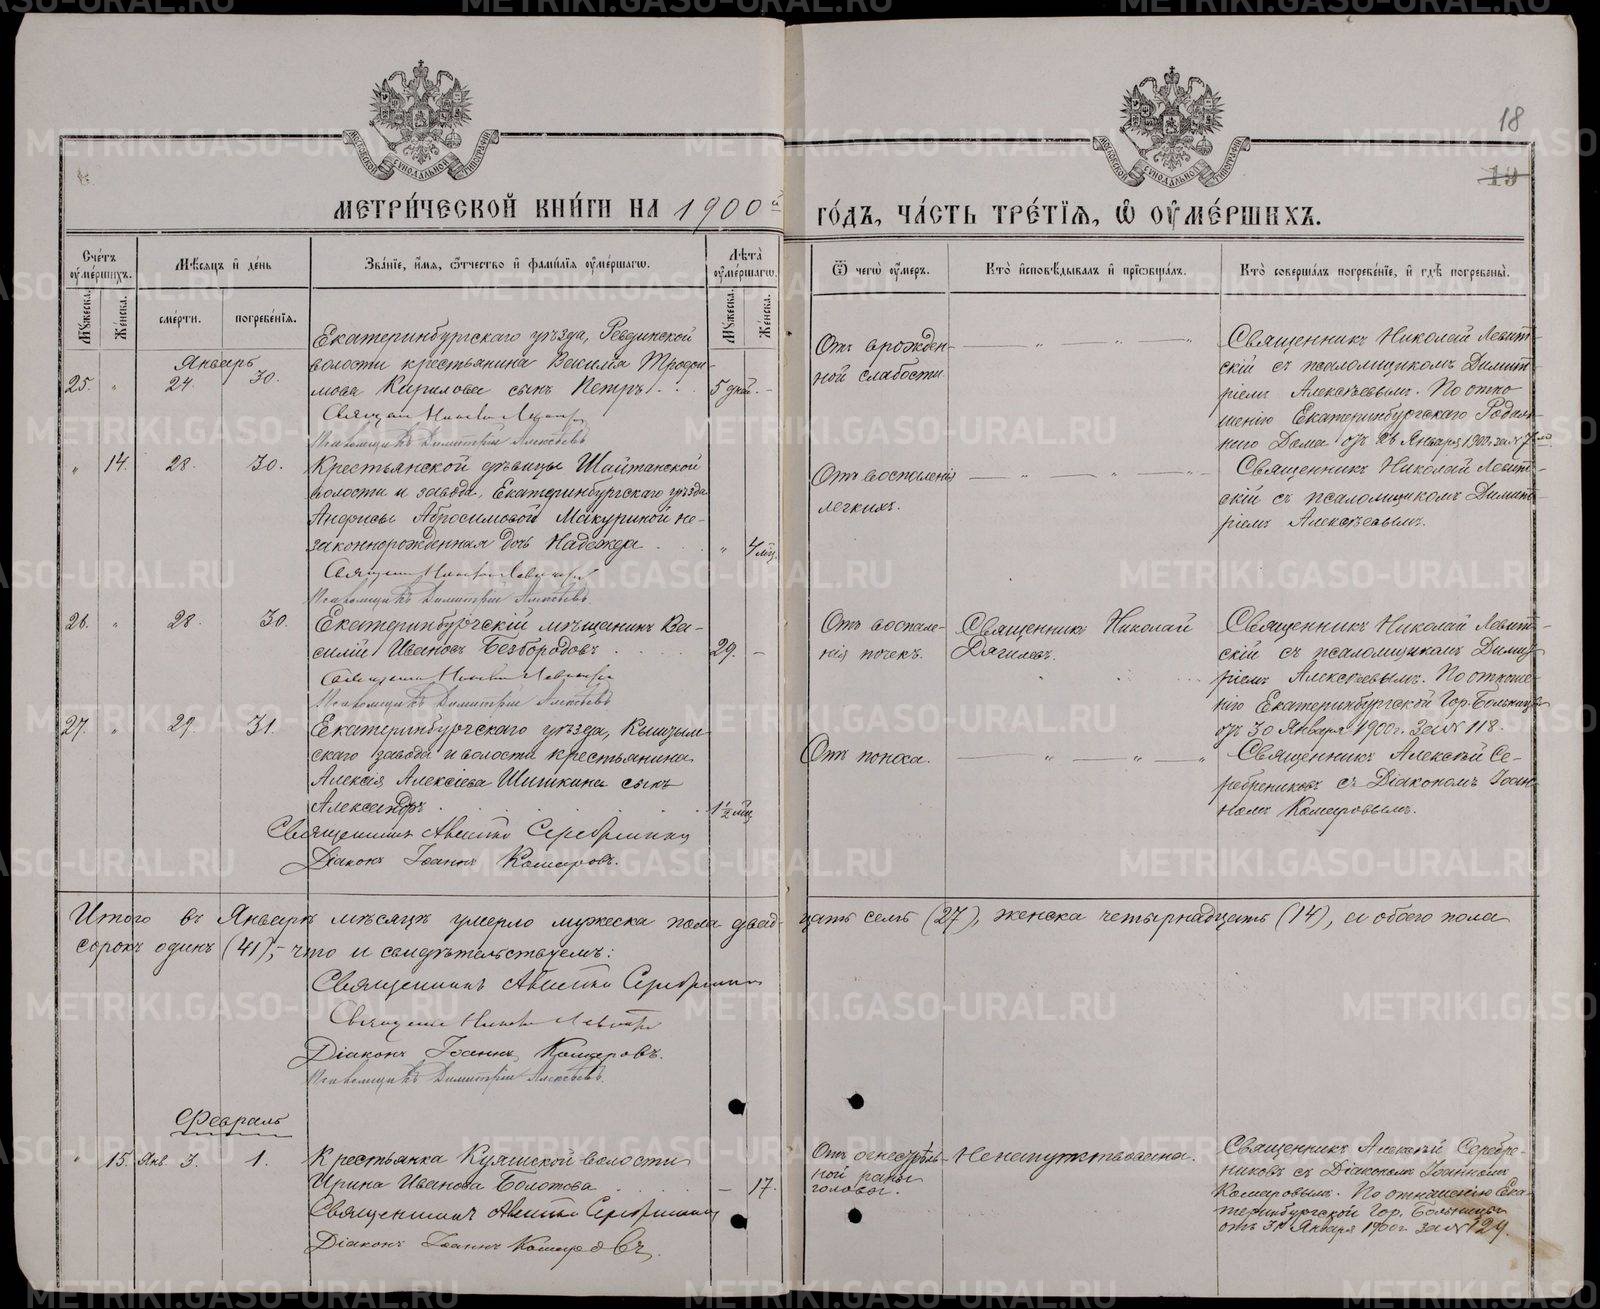 18
19
МОСКОВСКОЙ СѴНОДАЛЬНОЙ ТИПОГРАФІИ
МОСКОВСКОЙ СѴНОДАЛЬНОЙ ТИПОГРАФІИ
МЕТРИ́ЧЕСКОЙ КНИ́ГИ НА 1900й ГО́ДЪ, ЧА́СТЬ ТРЕ́ТІѦ, Ѽ ОУМЕ́РШИХЪ.
Сче́тъ оуме́ршихъ.
Мѣ́сѧцъ и де́нь
Зва́нїе, и́мѧ, ѻ́тчество и фами́лїѧ оуме́ршагѡ.
Лѣ́та оуме́ршагѡ.
Ѿ чегѡ̀ оу́меръ.
Кто̀ и҆сповѣ́дывалъ и прїѡбща́лъ.
Кто̀ соверша́лъ погребе́нїе, и гдѣ̀ погребены̀.
Мꙋ́жеска.
Же́нска.
сме́рти.
погребе́нїѧ.
Мꙋ́жеска.
Же́нска.
Январь
25. " 24. 30.
Екатеринбургскаго уѣзда, Ревдинской
волости крестьянина Василія Трофи-
мова Кирилова сынъ Петръ . . . 5 дней. -
Священ. Николай Левитскій
Псаломщикъ Димитрій Алексѣевъ
Отъ врожден-
ной слабости.
Священникъ Николай Левит-
скій съ псаломщикомъ Димит-
ріемъ Алексѣевымъ. По отно-
шенію Екатеринбургскаго Родиль-
наго Дома отъ Января 1900 г. за №
" 14. 28. 30.
Крестьянской дѣвицы Шайтанской
волости и завода, Екатеринбургскаго уѣзда
Анфисы Абросимовой Макуриной не-
законнорожденная дочь Надежда . . . " 4 мѣс.
Священ. Николай Левитскій
Псаломщикъ Димитрій Алексѣевъ.
Отъ воспаленія
легкихъ.
Священникъ Николай Левит-
скій съ псаломщикомъ Димит-
ріемъ Алексѣевымъ.
26. " 28. 30.
Екатеринбургскій мѣщанинъ Ва-
силій Ивановъ Безбородовъ . . . 29. -
Священ. Николай Левитскій
Псаломщикъ Димитрій Алексѣевъ
Отъ воспале-
нія почекъ.
Священникъ Николай
Дягилевъ.
Священникъ Николай Левит-
скій съ псаломщикомъ Димит-
ріемъ Алексѣевымъ. По отноше-
нію Екатеринбургской Гор. Больницы
отъ 30 Января 1900 г. за № 118.
27. " 29. 31.
Екатеринбургскаго уѣзда, Кыштым-
скаго завода и волости крестьянина
Алексія Алексіева Шишкина сынъ
Александръ . . . . . 1 1/2 мѣс.
Священникъ Алексѣй Серебренниковъ
Діаконъ Іоаннъ Комаровъ.
Отъ поноса.
Священникъ Алексѣй Се-
ребренниковъ съ Діакономъ Іоан-
номъ Комаровымъ.
Итого въ Январѣ мѣсяцѣ умерло мужеска пола двад-цать семь (27), женска четырнадцать (14), а обоего пола
сорокъ одинъ (41), - что и свидѣтельствуемъ:
Священникъ Алексѣй Серебренниковъ
Священ. Николай Левитскій
Діаконъ Іоаннъ Комаровъ.
Псаломщикъ Димитрій Алексѣевъ.
Февраль
" 15. Янв. 3. 1.
Крестьянка Куяшской волости
Ирина Иванова Болотова . . . - 17.
Священникъ Алексѣй Серебренниковъ
Діаконъ Іоаннъ Комаровъ.
Отъ огнестрѣль-
ной раны
головы.
Не напутствована.
Священникъ Алексѣй Серебре-
никовъ съ Діакономъ Іоанномъ
Комаровымъ. По отношенію Ека-
теринбургской Гор. Больницы
отъ 31 Января 1900 г. за № 129.
METRIKI.GASO-URAL.RU